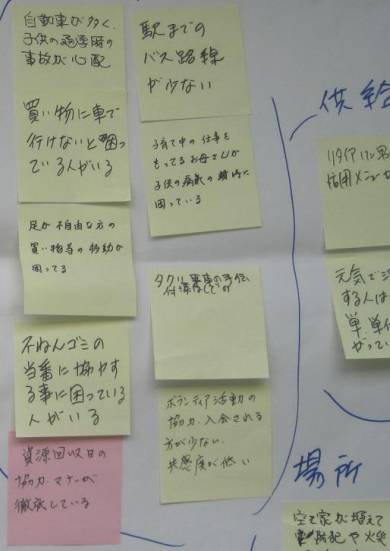 自動車が多く、
子供の通学時の
事故が心配
買い物に車で
行けないと困っ
ている人がいる
足が不自由な方の
買い物等の移動が
困ってる
不ねんゴミの
当番に協力す
る事に困っている
人がいる
資源回収日の
協力、マナーが
徹底している
駅までの
バス路線
が少ない
子育て中の仕事を
もってるお母さんが
子供の病気の時に
困っている
ボランティア活動の
協力、入会される
方が少ない、
共感度が低い
供給
リタイア
活用
元気で
する人は
単、単
がってい
場所
空き家が増えて
防犯や火災